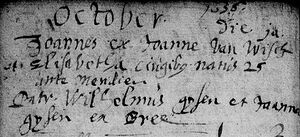 October
die ja
Joannes ex Joanne Van Wisch
et Elisabetha conjugibus natus 25
ante meridiem
Patr. Wilhelmus gysen et Joanna
gysen ex Bree